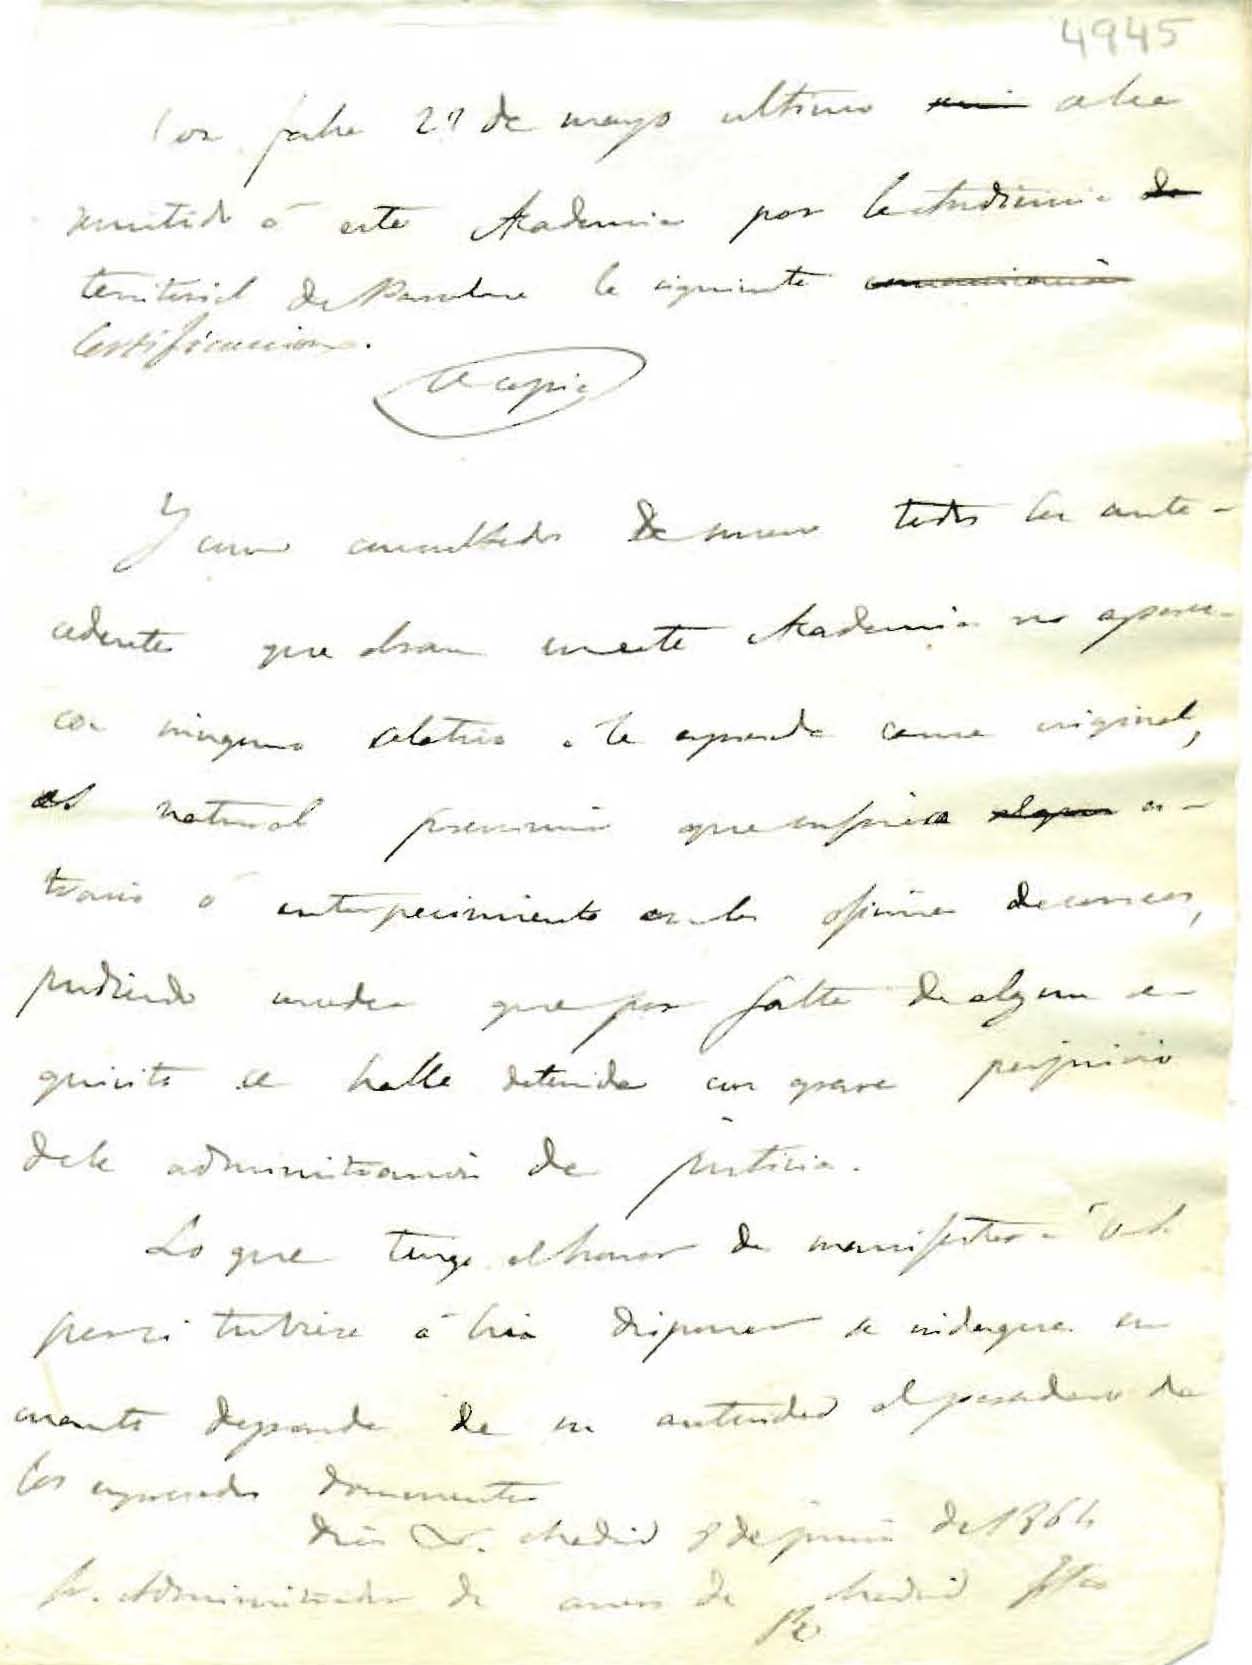 4945
Con fecha 27 de mayo ultimo se ha
remitido á esta Academia por la Audiencia de
territorial de la siguiente comunicación
Certificacion.
la copia
Y como consultados de nuevo todos los ante-
cedentes que obran en esta Academia no apare-
ce ninguno relativo á la expresada causa original,
es natural presumir que sufriera algun es-
travio ó entorpecimiento en las oficinas de correos,
pudiendo suceder que por falta de algun re-
quisito se halle detenida con grave perjuicio
de la administracion de justicia.
Lo que tengo el honor de manifestar á V.S.
por si tubiere á bien disponer se indague en
cuanto dependa de su autoridad el paradero de
los expresados documentos
Dios &. Madrid 8 de junio de 1864
Sr. Administrador de correos de Madrid